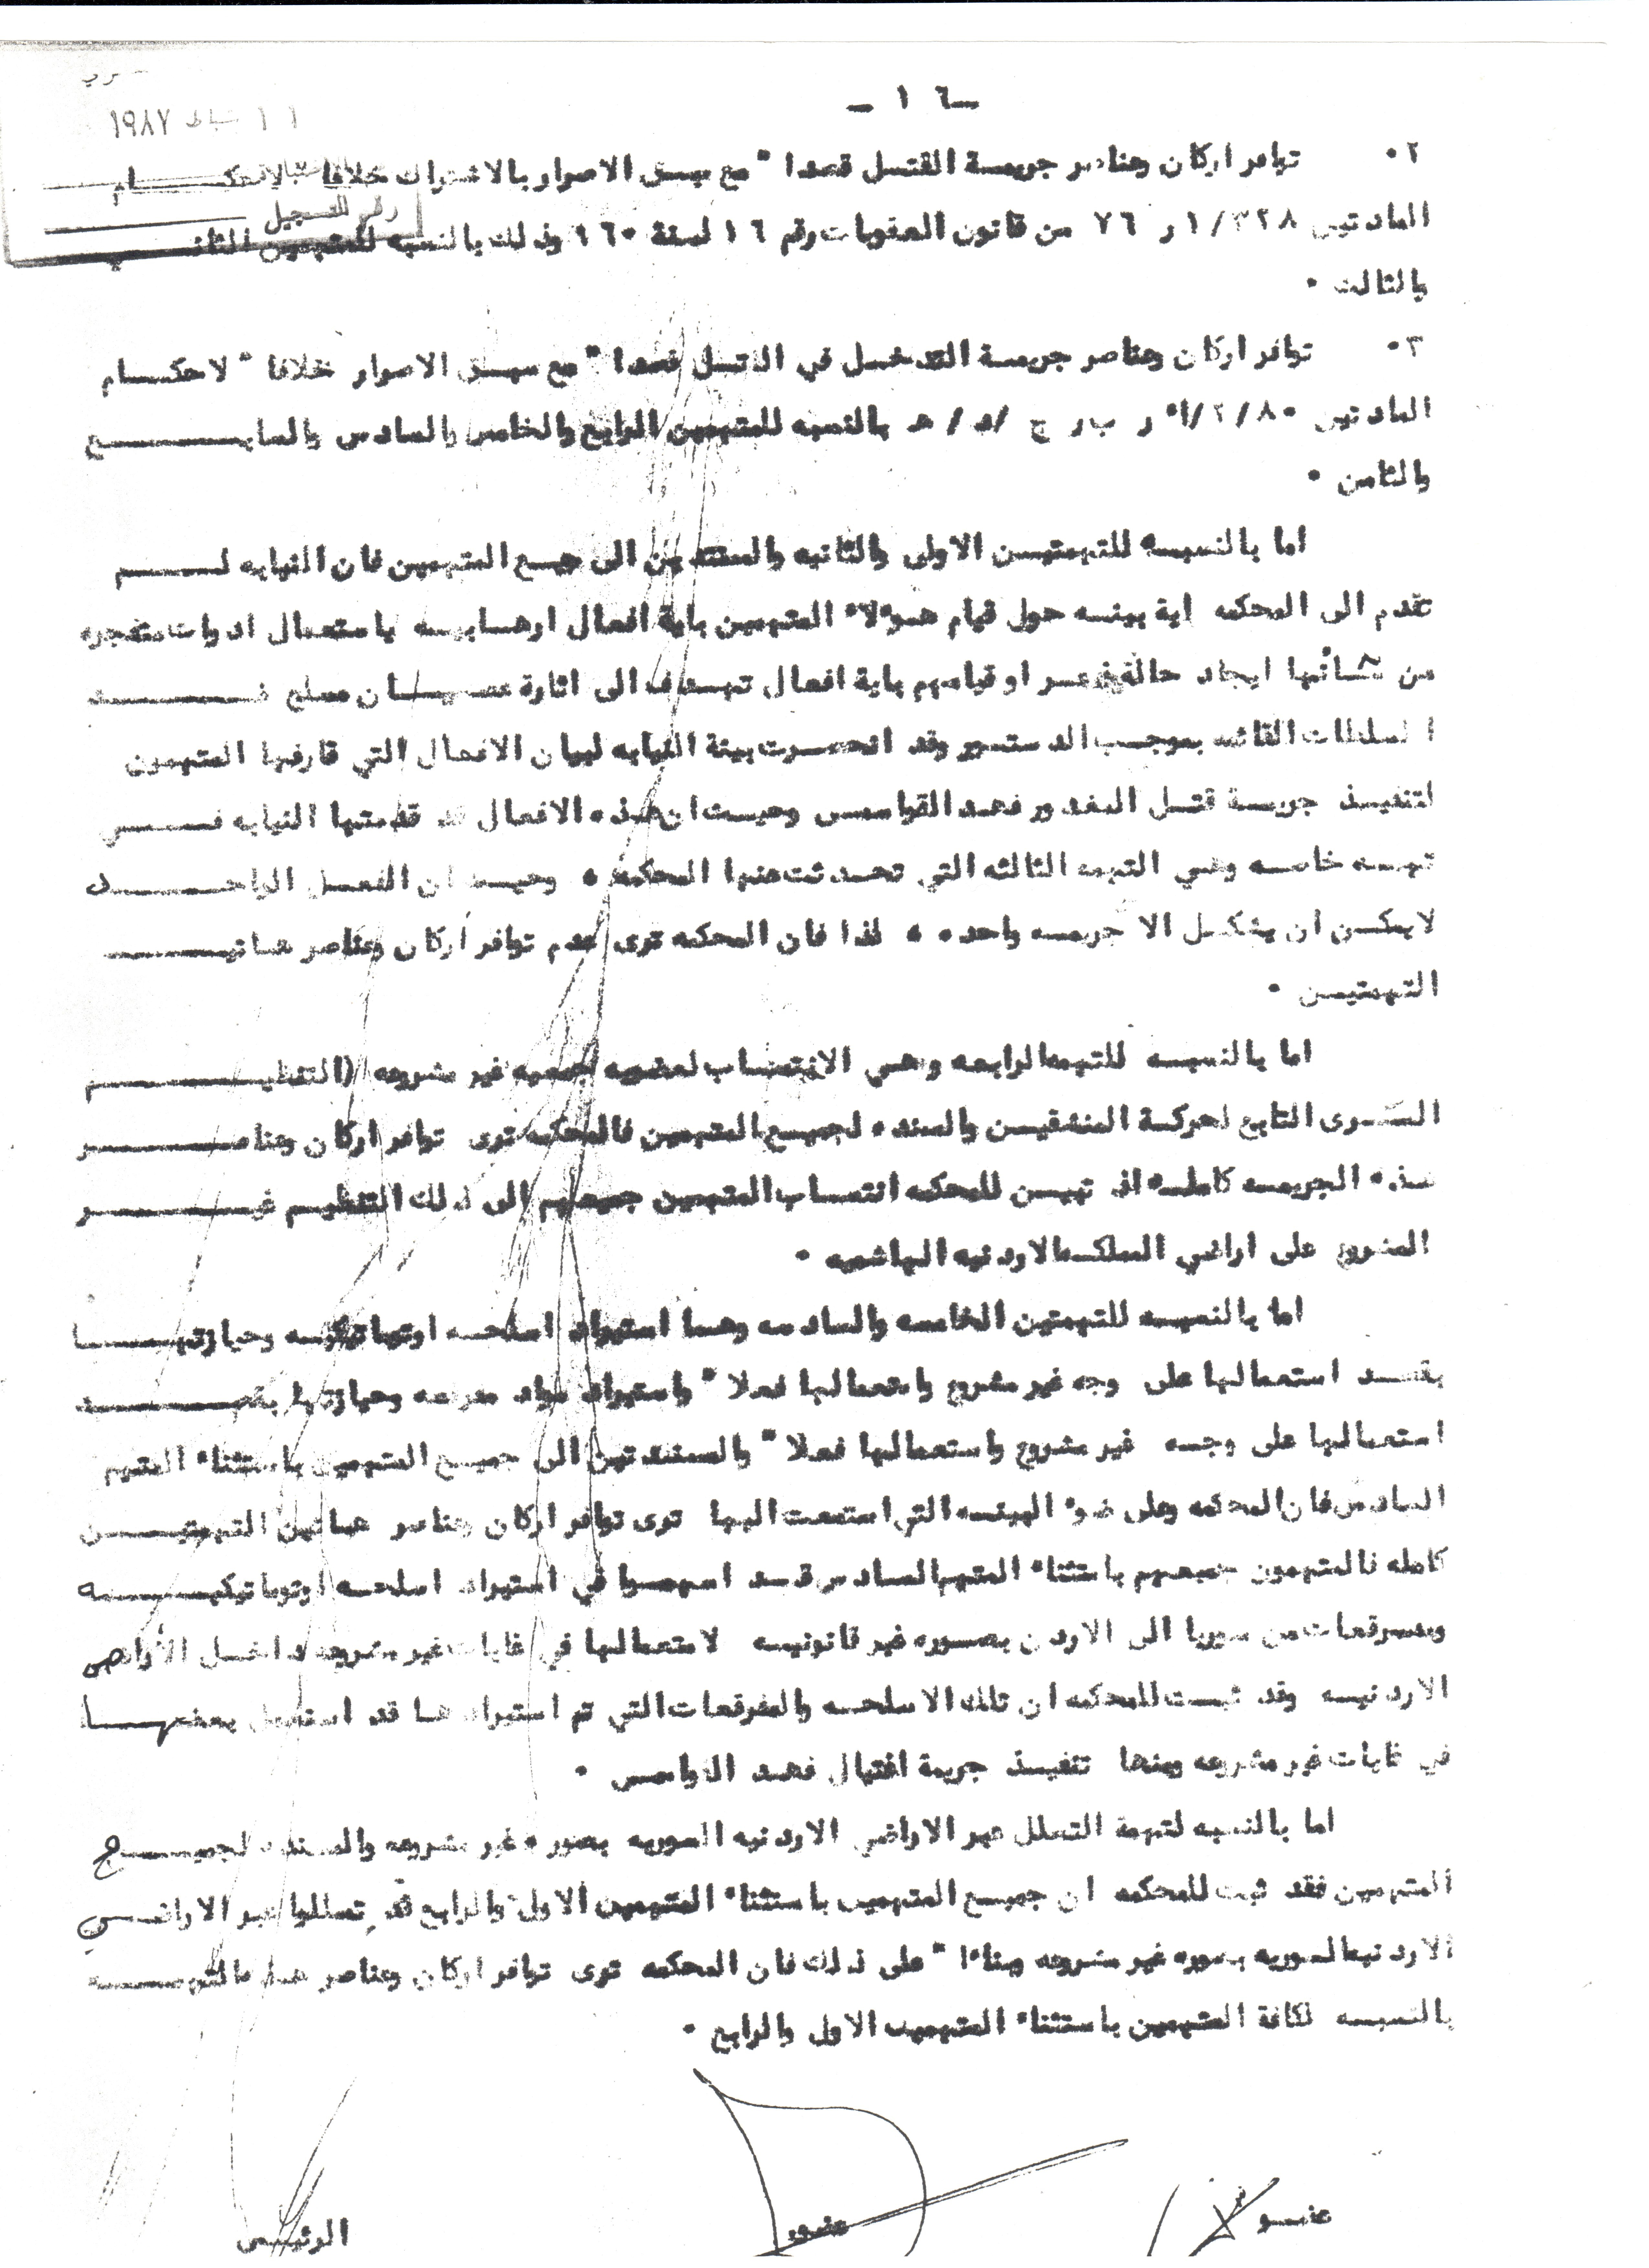 ١١ شباط ١٩٨٧
رقم التسجيل
ـ ١٦ ـ
٢٠ توافر اركان وعناصر جريمة القتل قصدا " مع سبق الاصرار بالاشتراك خلافا لاحكام
المادتين ١/٣٢٨ و ٧٦ من قانون العقوبات رقم ١٦ لسنة ٩٦٠ وذلك بالنسبه للمتهمين الثاني
والثالث ٠
٣٠ توافر اركان وعناصر جريمة التدخل في القتل قصدا " مع سبق الاصرار خلافا " لاحكام
المادتين ٢/٨٠/أ و ب و ج /د/ هـ بالنسبه للمتهمين الرابع والخامس والسادس والسابع
والثامن ٠
اما بالنسبه للتهمتين الاولى والثانيه والمسندتين الى جميع المتهمين فان النيابه لم
تقدم الى المحكمه اية بينه حول قيام هولاء المتهمين باية افعال ارهابيه باستعمال ادوات متفجره
من شأنها ايجاد حالة ذعر او قيامهم باية افعال تهدف الى اثارة عصيان مسلح ضد
السلطات القائمه بموجب الدستور وقد انحصرت بينة النيابه لبيان الافعال التي قارفها المتهمون
لتنفيذ جريمة قتل المغدور فهد القواسمي وحيث ان هذه الافعال قد قدمتها النيابه في
تهمه خاصه وهي التهمه الثالثه التي تحدثت عنها المحكمه ٠ وحيث ان الفعل الواحد
لايمكن ان يشكل الا جريمه واحده ٠ لذا فان المحكمه ترى عدم توافر أركان وعناصر هاتين
التهمتين ٠
اما بالنسبه للتهمه الرابعه وهي الانتساب لعضويه جمعيه غير مشروعه (التنظيم
العسكرى التابع لحركة المنشقين والمسنده لجميع المتهمين فالمحكمه ترى توافر اركان وعناصر
هذه الجريمه كامله اذ تبين للمحكمه انتساب المتهمين جميعهم الى ذلك التنظيم غير
المشروع على اراضي المملكه الاردنيه الهاشميه ٠
اما بالنسبه للتهمتين الخامسه والسادسه وهما استيراد اسلحه اوتوماتيكيه وحيازتها
بقصد استعمالها على وجه غير مشروع واستعمالها فعلا " واستيراد مواد مفرقعه وحيازتها بقصد
استعمالها على وجه غير مشروع واستعمالها فعلا " والمسندتين الى جميع المتهمين باستثناء المتهم
السادس فان المحكمه وعلى ضوء البينه التي استمعت اليها ترى توافر اركان وعناصر هاتين التهمتين
كامله فالمتهمون جميعهم باستثناء المتهم السادس قد اسهموا في استيراد اسلحه اوتوماتيكيه
ومفرقعات من سوريا الى الاردن بصوره غير قانونيه لاستعمالها في غايات غير مشروعه داخل الأراضي
الاردنيه وقد ثبت للمحكمه ان تلك الاسلحه والمفرقعات التي تم استيرادها قد استعمل بعضها
في غايات غير مشروعه ومنها تنفيذ جريمة اغتيال فهد القواسمي ٠
اما بالنسبه لتهمة التسلل عبر الاراضي الاردنيه السوريه بصوره غير مشروعه والمسنده لجميع
المتهمين فقد ثبت للمحكمه ان جميع المتهمين باستثناء المتهمين الاول والرابع قد تسللوا عبر الاراضي
الاردنيه السوريه بصوره غير مشروعه وبناءا " على ذلك فان المحكمه ترى توافر اركان وعناصر هذه التهمه
بالنسبه لكافة المتهمين باستثناء المتهمين الاول والرابع ٠
عضو عضو الرئيس